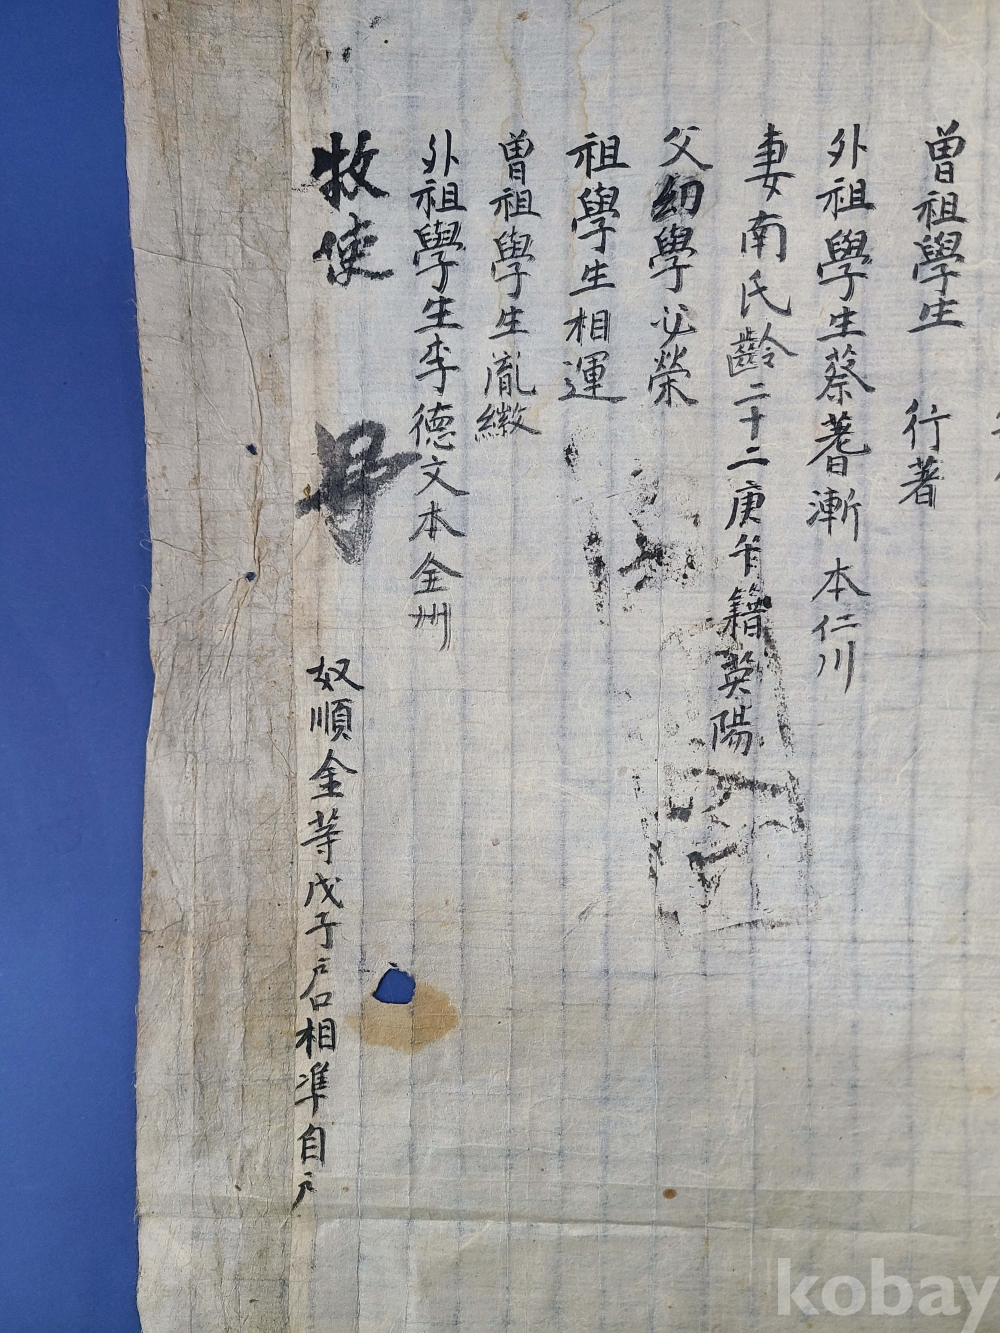 曽祖學生 行著
外祖學生蔡蓍漸 本仁川
妻南氏齡二十二庚午籍英陽
父幼學必榮
祖學生相運
曽祖學生胤緻
外祖學生李德文本全州
牧使
奴順金等戊子戶口相準自戶
kobay